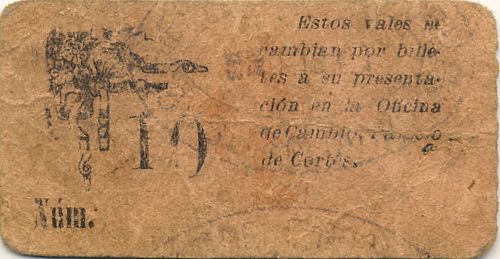 Estos vales se
cambian por bille-
tes á su presenta-
ción en la Oficina
de Cambio, Palacio
de Cortés.
10
Núm.